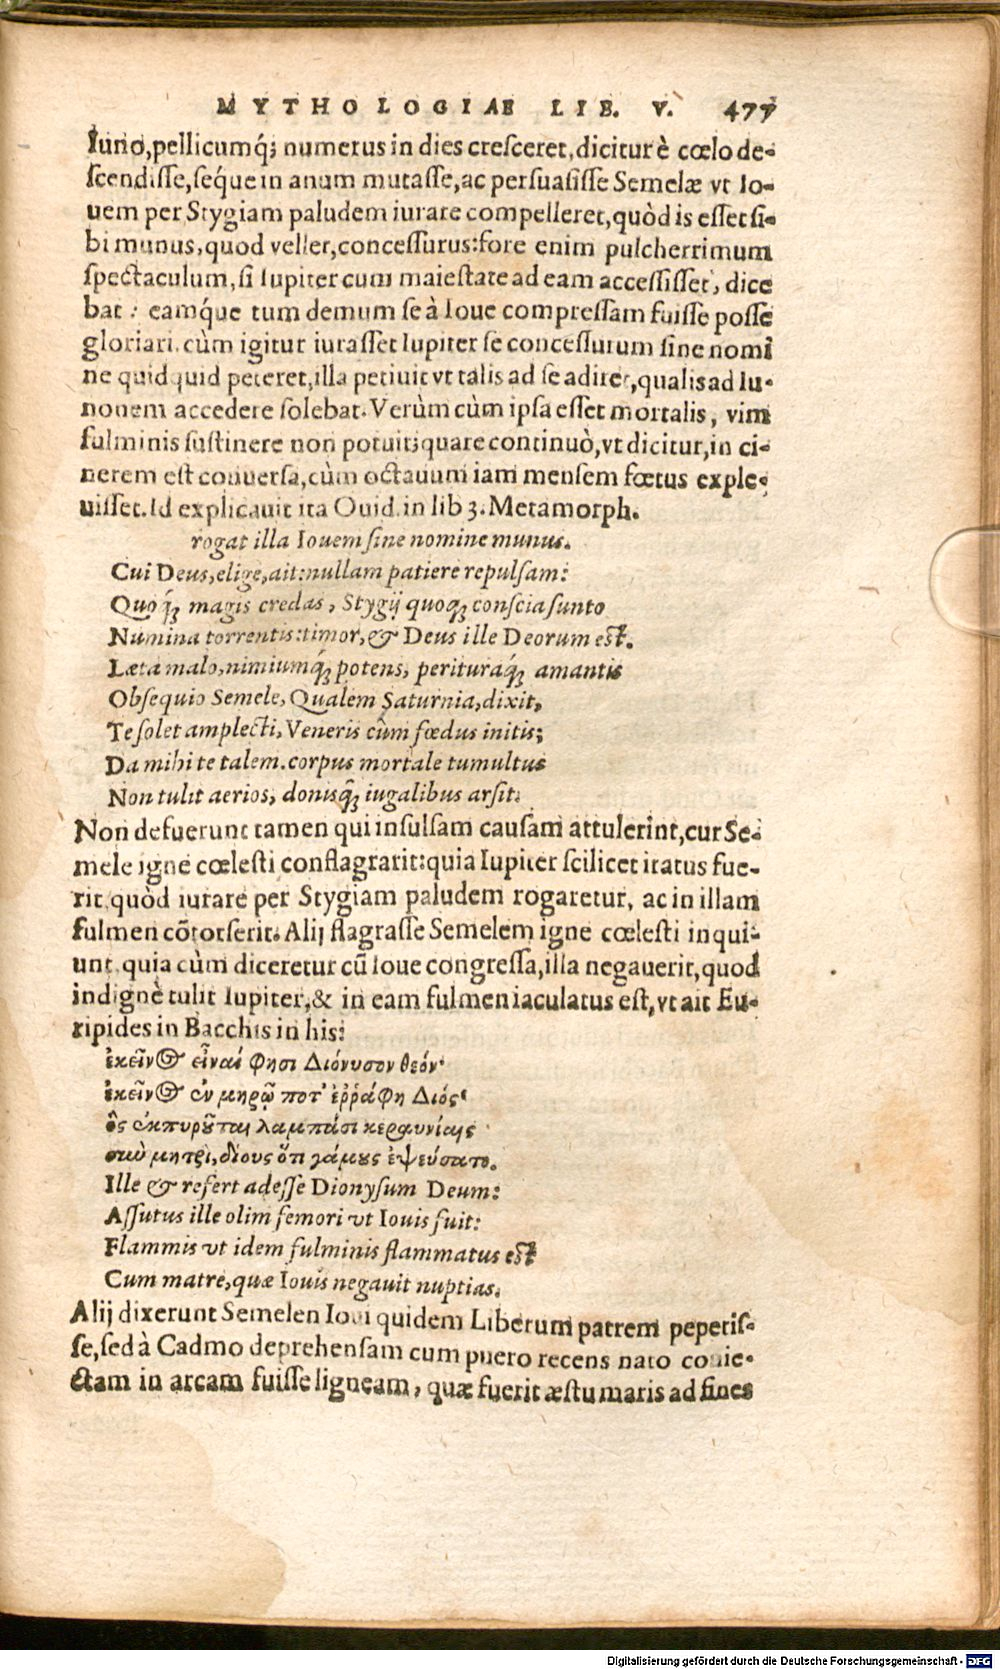 MYTHOLOGIAE LIB. V. 477
Iuno, pellicumq́; numerus in dies cresceret, dicitur è cœlo de-
scendisse, seq́ue in anum mutasse, ac persuasisse Semelæ vt Io-
uem per Stygiam paludem iurare compelleret, quòd is esset si-
bi munus, quod vellet, concessurus: fore enim pulcherrimum
spectaculum, si Iupiter cum maiestate ad eam accessisset, dice
bat: eamq́ue tum demum se à Ioue compressam fuisse posse
gloriari. cùm igitur iurasset Iupiter se concessurum sine nomi
ne quidquid peteret, illa petiuit vt talis ad se adiret, qualis ad Iu-
nonem accedere solebat. Verùm cùm ipsa esset mortalis, vim
fulminis sustinere non potuit; quare continuò, vt dicitur, in ci-
nerem est conuersa, cùm octauum iam mensem fœtus exple-
uisset. Id explicauit ita Ouid. in lib 3. Metamorph.
rogat illa Iouem sine nomine munus.
Cui Deus, elige, ait: nullam patiere repulsam:
Quoq́; magis credas, Stygij quoq; conscia sunto
Numina torrentis: timor, & Deus ille Deorum est.
Læta malo, nimiumq́; potens, perituraq́; amantis
Obsequio Semele, Qualem Saturnia, dixit,
Te solet amplecti, Veneris cùm fœdus initis;
Da mihi te talem. corpus mortale tumultus
Non tulit aerios, donisq́; iugalibus arsit.
Non defuerunt tamen qui insulsam causam attulerint, cur Se-
mele igne cœlesti conflagrarit: quia Iupiter scilicet iratus fue-
rit, quòd iurare per Stygiam paludem rogaretur, ac in illam
fulmen cõtorserit. Alij flagrasse Semelem igne cœlesti inqui-
unt, quia cùm diceretur cũ Ioue congressa, illa negauerit, quod
indignè tulit Iupiter, & in eam fulmen iaculatus est, vt ait Eu-
ripides in Bacchis in his:
ἐκεῖνος εἶναί φησι Διόνυσον θεόν·
ἐκεῖνος ἐν μηρῷ ποτ' ἐῤῥάφη Διός·
ὃς ἐκπυροῦται λαμπάσι κεραυνίαις
σὺν μητρὶ, δίους ὅτι γάμους ἐψεύσατο.
Ille & refert adesse Dionysum Deum:
Assutus ille olim femori vt Iouis fuit:
Flammis vt idem fulminis flammatus est
Cum matre, quæ Iouis negauit nuptias.
Alij dixerunt Semelen Ioui quidem Liberum patrem peperis-
se, sed à Cadmo deprehensam cum puero recens nato conie-
ctam in arcam fuisse ligneam, quæ fuerit æstu maris ad fines
Digitalisierung gefördert durch die Deutsche Forschungsgemeinschaft - DFG